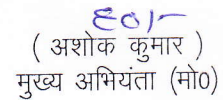 ह०/-
( अशोक कुमार )
मुख्य अभियंता (मो0)